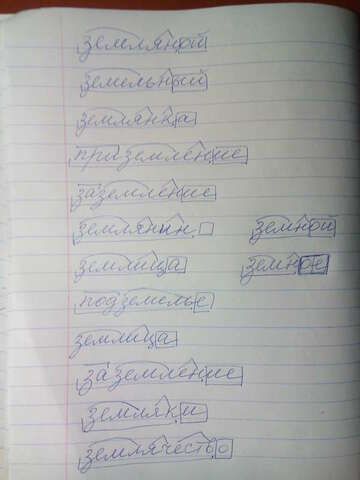 земляной
земельный
землянка
приземление
заземление
землянин земной
землица земное
подземелье
землица
заземление
земляки
землячество